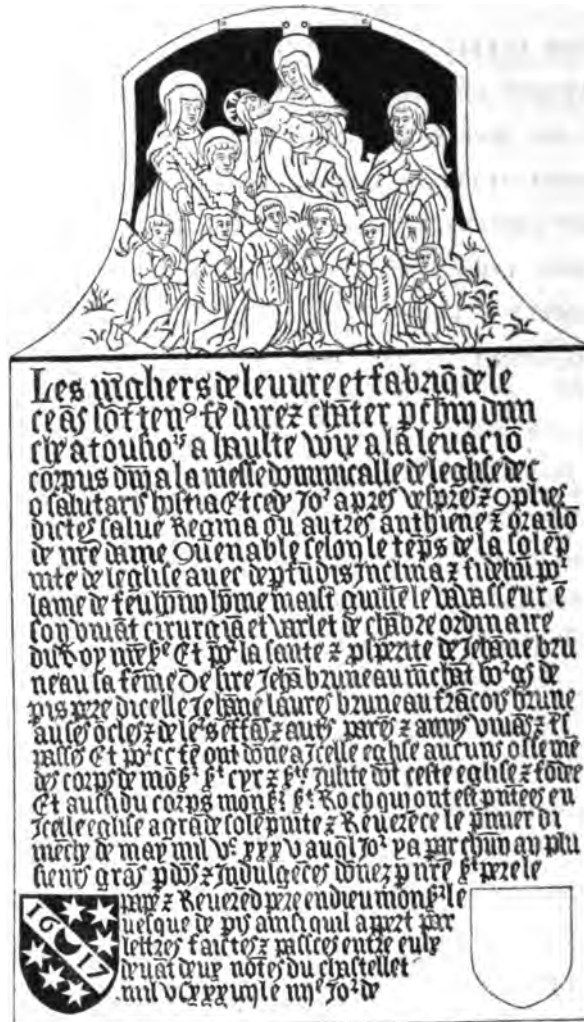 Les m̄ghers de leuure et fabriq̄ de le
ce ās sōt ten9 fe direz chāter p chūn dim
che a tousioʳˢ a haulte voix a la leuaciō
corpus dn̄i a la messe dominicalle de leglise de c
o salutaris hostia Et ced Joʳ apres vespres z 9plies
dictes salue Regina ou autres anthiene z oraisō
de nr̄e dame 9uenable selon le tēps de la solēp
nite de leglise auec de pfūdis Inclina z fideliū poʳ
lame de feu hōme maist guille le vavasseur ē
son viuāt cirurgiē et varlet de chābre ordinaire
du Roy nr̄e sᵉ Et poʳ la sante z de Jehāne bru
neau sa fēme De sire Jehā bruneau m̄chāt boʳgs de
pis pere dicelle Jehāne laures bruneau frācois brune
au ses ōcles z de leʳs z auts parēs z amys viuās z
passes Et poʳ ce fe ont dōne a Icelle eglise aucuns osseme
des corps de mōsʳ sᵗ cyr z sᵗᵉ Julite dōt ceste eglise z fōdee
Et aussi du corps monsʳ sᵗ Roch qui ont este pn̄tees en
Icelle eglise a grāde solēpnite z Reuerēce le pm̄ier di
mēche de may mil vᶜ xxxv auql Joʳ y a par chūn an plu
sieurs grās pdōs z Indulgēces dōnez p nr̄e sᵗ pere le
pape z Reuerēd pere en dieu monsʳ le
uesque de pis ainsi quil appert par
lettres faictes z passees entre eulx
deuāt deux notes du chastellet
mil vᶜ xxxiiij le iiijᵉ Joʳ de
1617